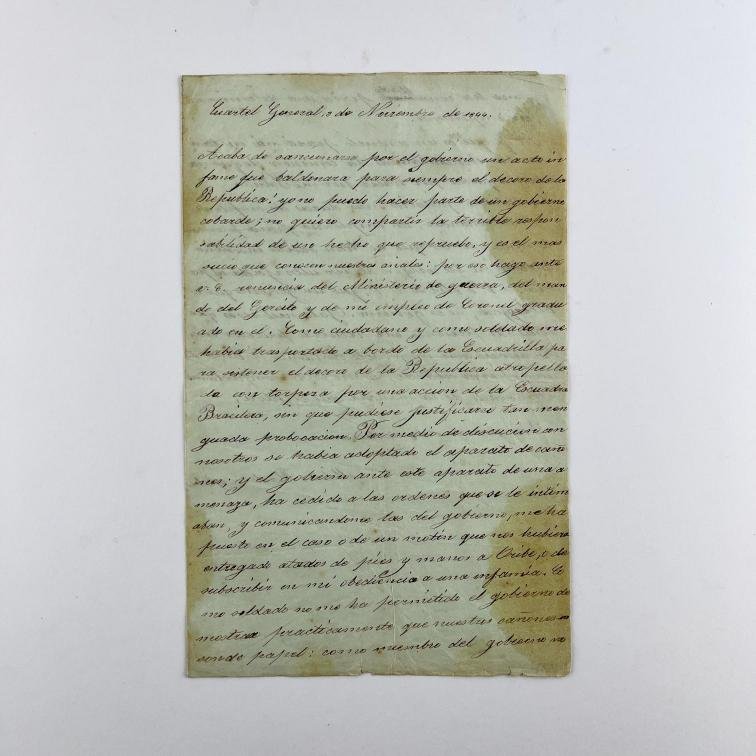 Cuartel General, 7 de Noviembre de 1844.
Acaba de sancionarse por el gobierno un acto in
fame que baldonara para siempre el decoro de la
Republica! yo no puedo hacer parte de un gobierno
cobarde; no quiero compartir la terrible respon
sabilidad de un hecho que repruebo, y es el mas
sucio que conocen nuestros anales: por eso hago ante
V. E. renuncia del Ministerio de guerra, del man
do del Gercito y de mi empleo de Coronel gradu
ado en el. Como ciudadano y como soldado me
habia trasportado a bordo de la Escuadrilla pa
ra sostener el decoro de la Republica atropella
da con torpeza por una accion de la Escuadra
Brasilera, sin que pudiese justificarse tan men
guada probocacion. Por medio de discucion con
nosotros se habia adoptado el aparato de caño
nes; y el gobierno ante este aparato de una a
menaza, ha cedido a las ordenes que se le intim
aban, y comunicandome las del gobierno, me ha
puesto en el caso o de un motin que nos hubiera
entregado atados de pies y manos a Oribe, o de
subscribir en mi obediencia a una infamia. Co
mo soldado no me ha permitido el gobierno de
mostrar practicamente que nuestros cañones no
son de papel: como miembro del gobierno no